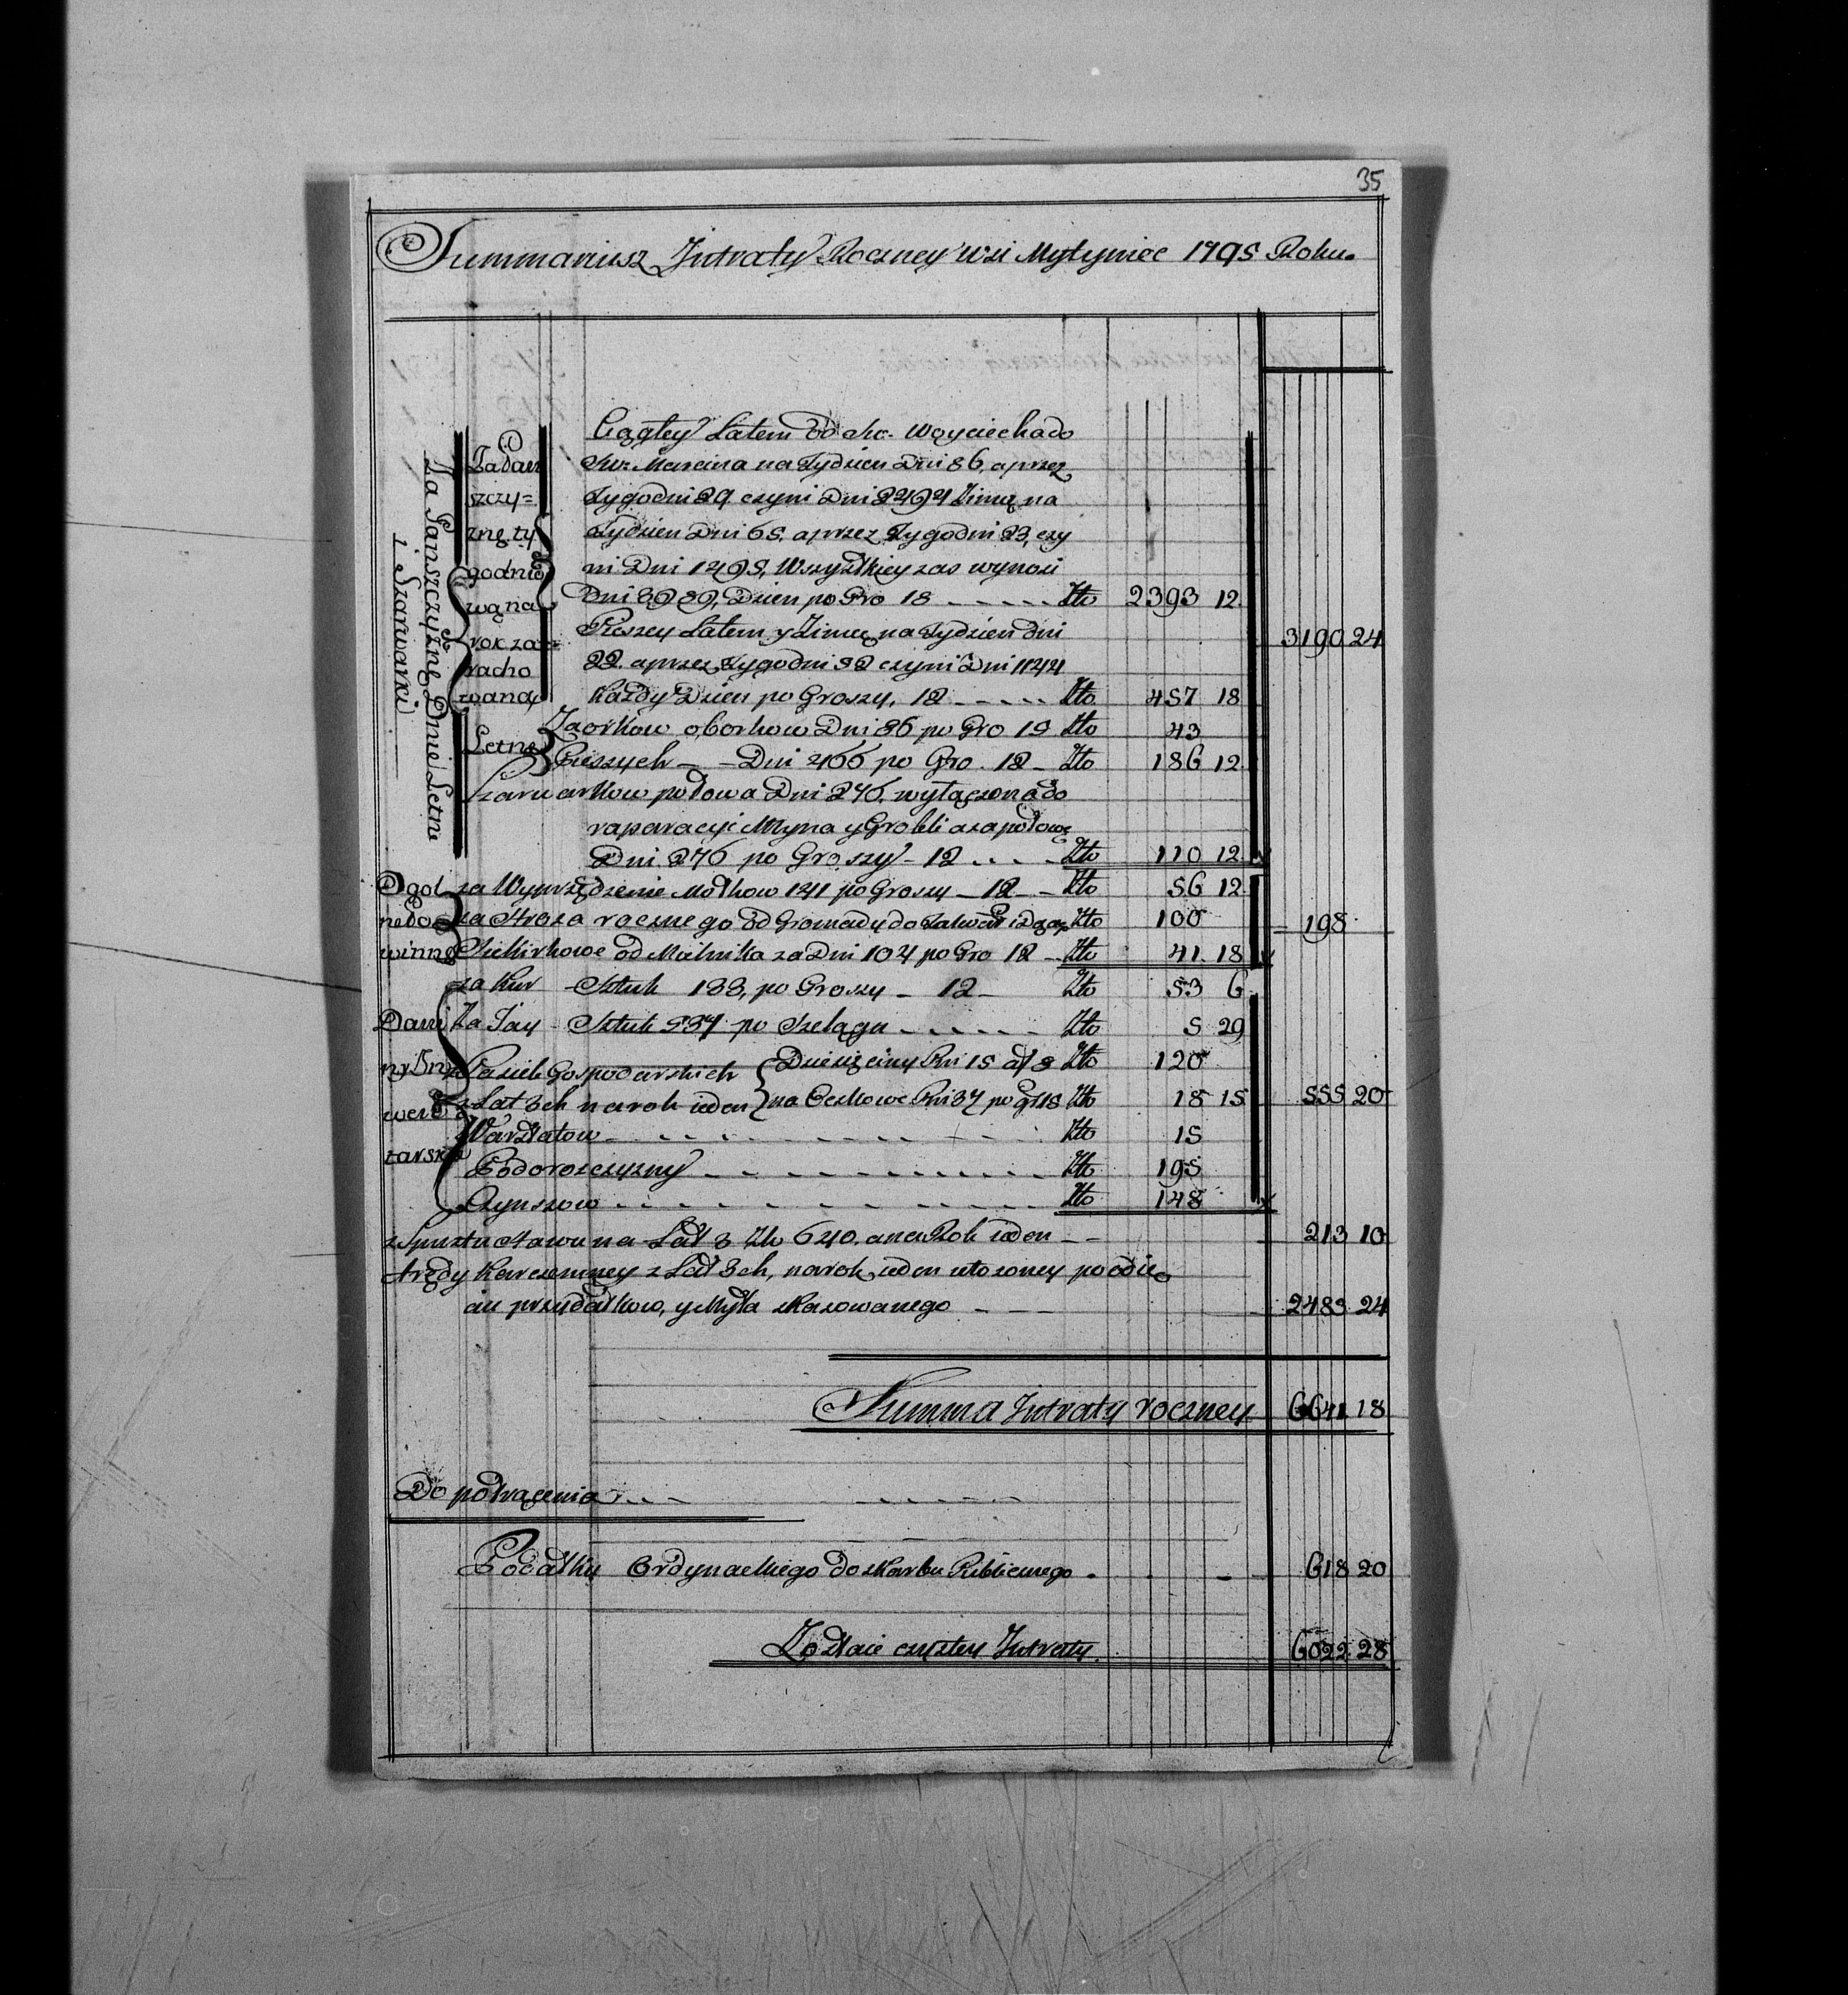 35
Summariusz Intraty Roczney Wsi Mytyniec 1795 Roku.
Za Panszczyznę Dnie Letne
i Szarwarki
Za Pan
szczy=
znę ty
godnio
wą na
rok za=
racho
waną
Ciągłey Latem od Sw. Woyciecha do
Sw: Marcina na Tydzien Dni 86, a przez
Tygodni 29. czyni Dni 2494 Zimą na
Tydzien Dni 65, a przez Tygodni 23, czy
ni Dni 1495, Wszystkiey zas wynosi
Dni 3989, Dzien po Gro 18 Zło 2393 12
Pieszey Latem y Zimą na Tydzien dni
22. a przez Tygodni 52 czyni Dni 1144
każdy Dzien po Groszy, 12 Zło 457 18
3190 24
Letne
Zaorkow oborkow Dni 86 po Gro 15 Zło 43
Pieszych Dni 466 po Gro. 12 Zło 186 12
Szarwarkow połowa Dni 276. wyłączona do
raparacyi Młyna y Grobli a za połowę
Dni 276 po Groszy 12 Zło 110 12
Ogol
ne Po
winno
za Wyprzędzenie Motkow 141 po Groszy 12 Zło 56 12
za Stroza rocznego od Gromady do Zło 100
Siekirkowe od Mielnika za Dni 104 po Gro 12 Zło 41 18
198
Dani
ny
za Kur Sztuk 133, po Groszy 12 Zło 53 6
Za Jay Sztuk 537 po Szelągu Zło 5 29
Pasiek Gospodarskich Dziesięciny Pni 15 a zł 8 Zło 120
z Lat 3ch na rok ieden na Oczkowe Pni 37 po gr 15 Zło 18 15
Warstatow Zło 15
Podoroszczyzny Zło 195
Czynszow Zło 148
555 20
z Spustu Stawu na Lat 3 Zło 640. a na Rok ieden 213 10
Arędy Karczemney z Lat 3ch, na rok ieden
przydatkow, y Myta skasowanego 2483 24
Summa Intraty roczney 6641 18
Do potrącenia
Podatku Ordynackiego do skarbu Publicznego 618 20
Zostaie czystey Intraty 6022 28